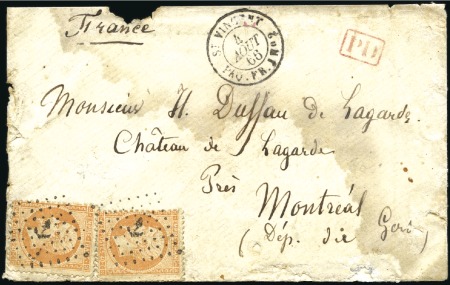 France
ST VINCENT
4
AOUT
66
PAQ. FR. J Nº 2
PD
Monsieur H. Duffau de Lagarde
Château de Lagarde
Près
Montréal
(Dép. du Gers)